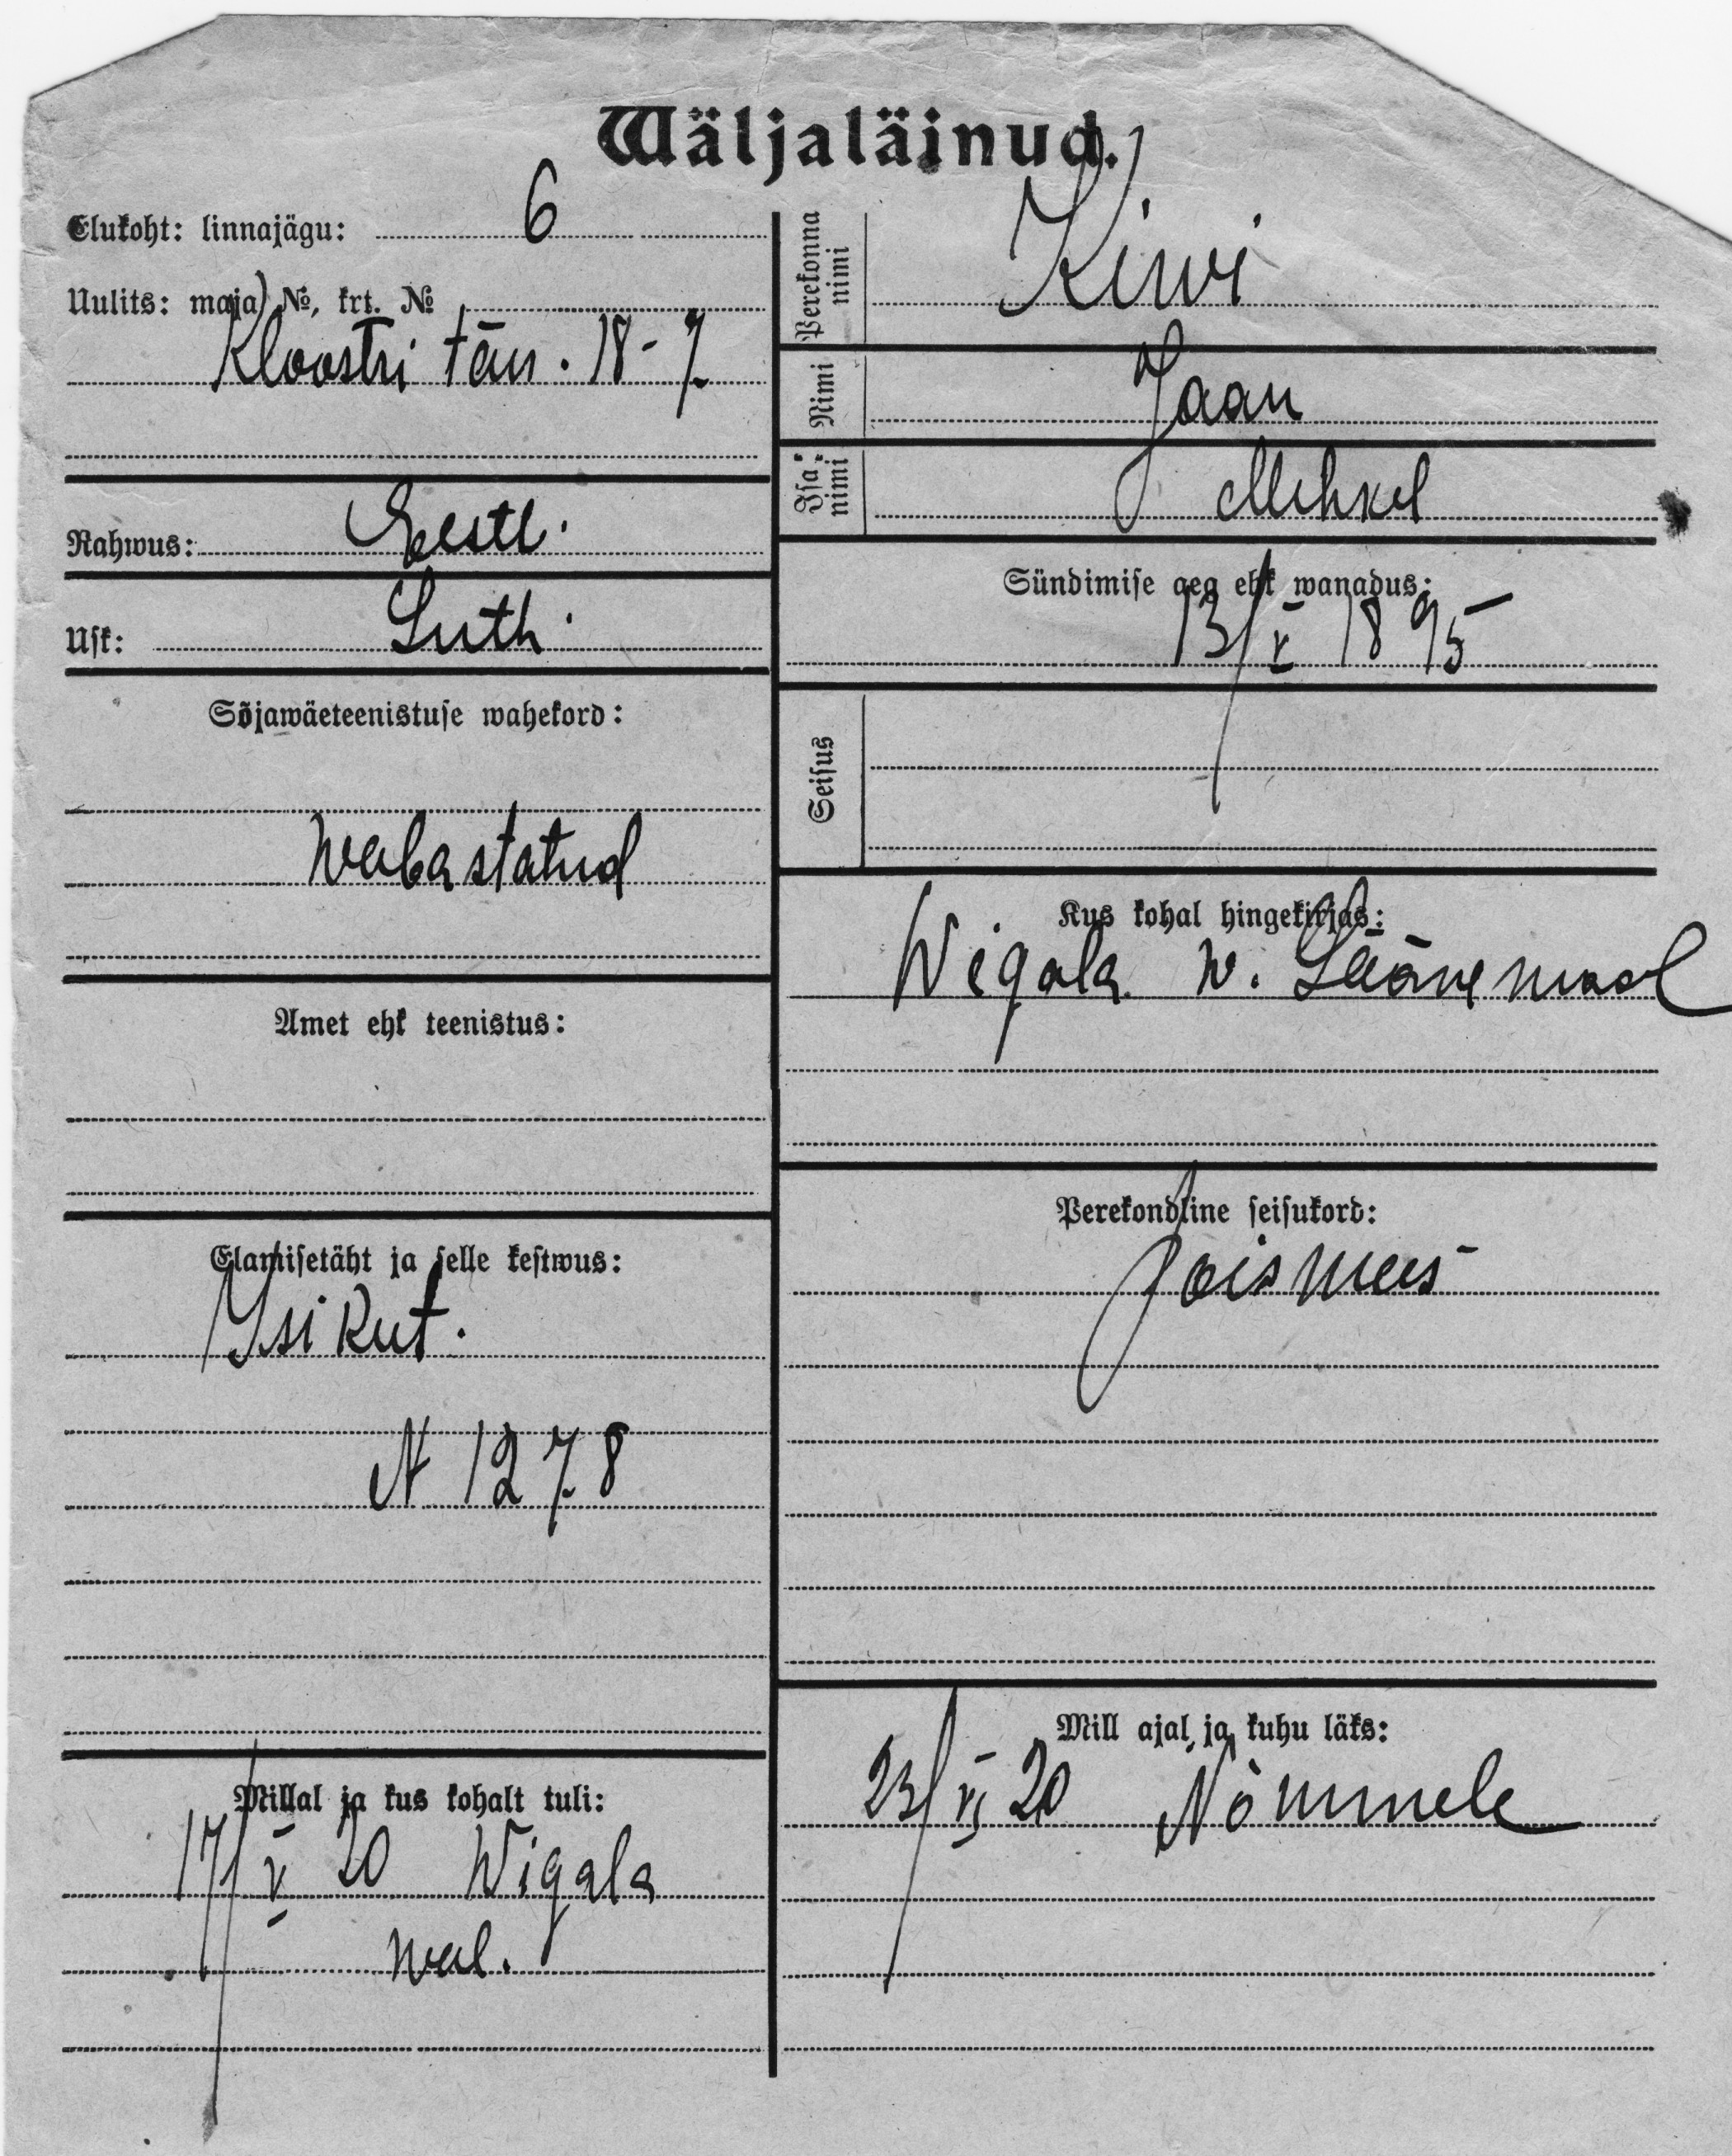 Wäljaläinud.
Elukoht: linnajägu: 6
Uulits: maja) №, krt. №
Kloostri tän. 18-7
Rahwus: Eestl.
Usk: Luth.
Sõjawäeteenistuse wahekord:
Wabastatud
Amet ehk teenistus:
Elamisetäht ja selle kestwus:
Isikut.
N 1278
Millal ja kus kohalt tuli:
17/V 20 Wigala
wal.
Perekonna nimi
Kiwi
Nimi
Jaan
Isa-nimi
Mihkel
Sündimise aeg ehk wanadus:
13/V 1895
Seisus
Kus kohal hingekirjas:
Wigala w. Läänemaal
Perekondline seisukord:
Poismees
Mill ajal ja kuhu läks:
23/VI 20 Nõmmele